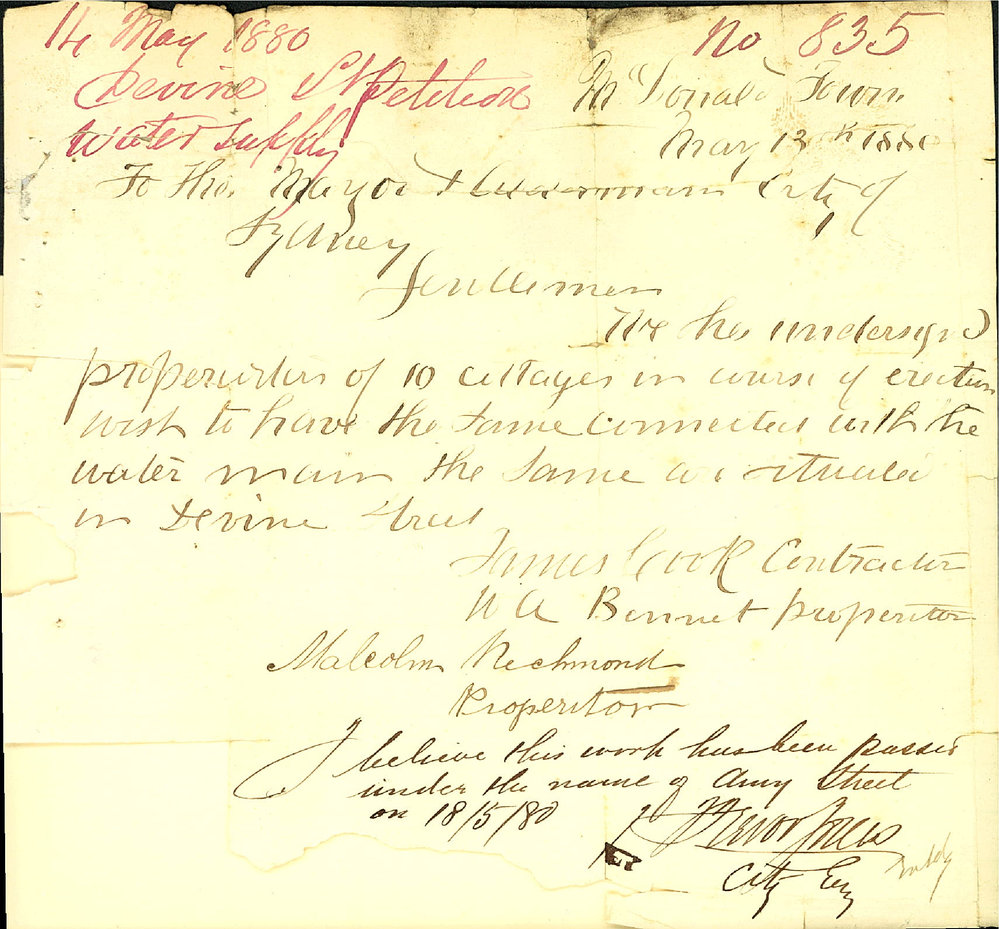 14 May 1880 No 835
Devine St Petition
Water Supply
McDonald Town
May 13th 1880
To The Mayor & Aldermen City of
Sydney
Gentlemen
We the undersignd
properitors of 10 cottages in course of erection
wish to have the same connected with the
water main the same are situated
in Devine Street
James Cook Contractor
W A Bennet properitor
Malcolm Richmond
Properitor
I believe this work has been passed
under the name of Amy Street
on 18/5/80
Trevor Jones
City Eng